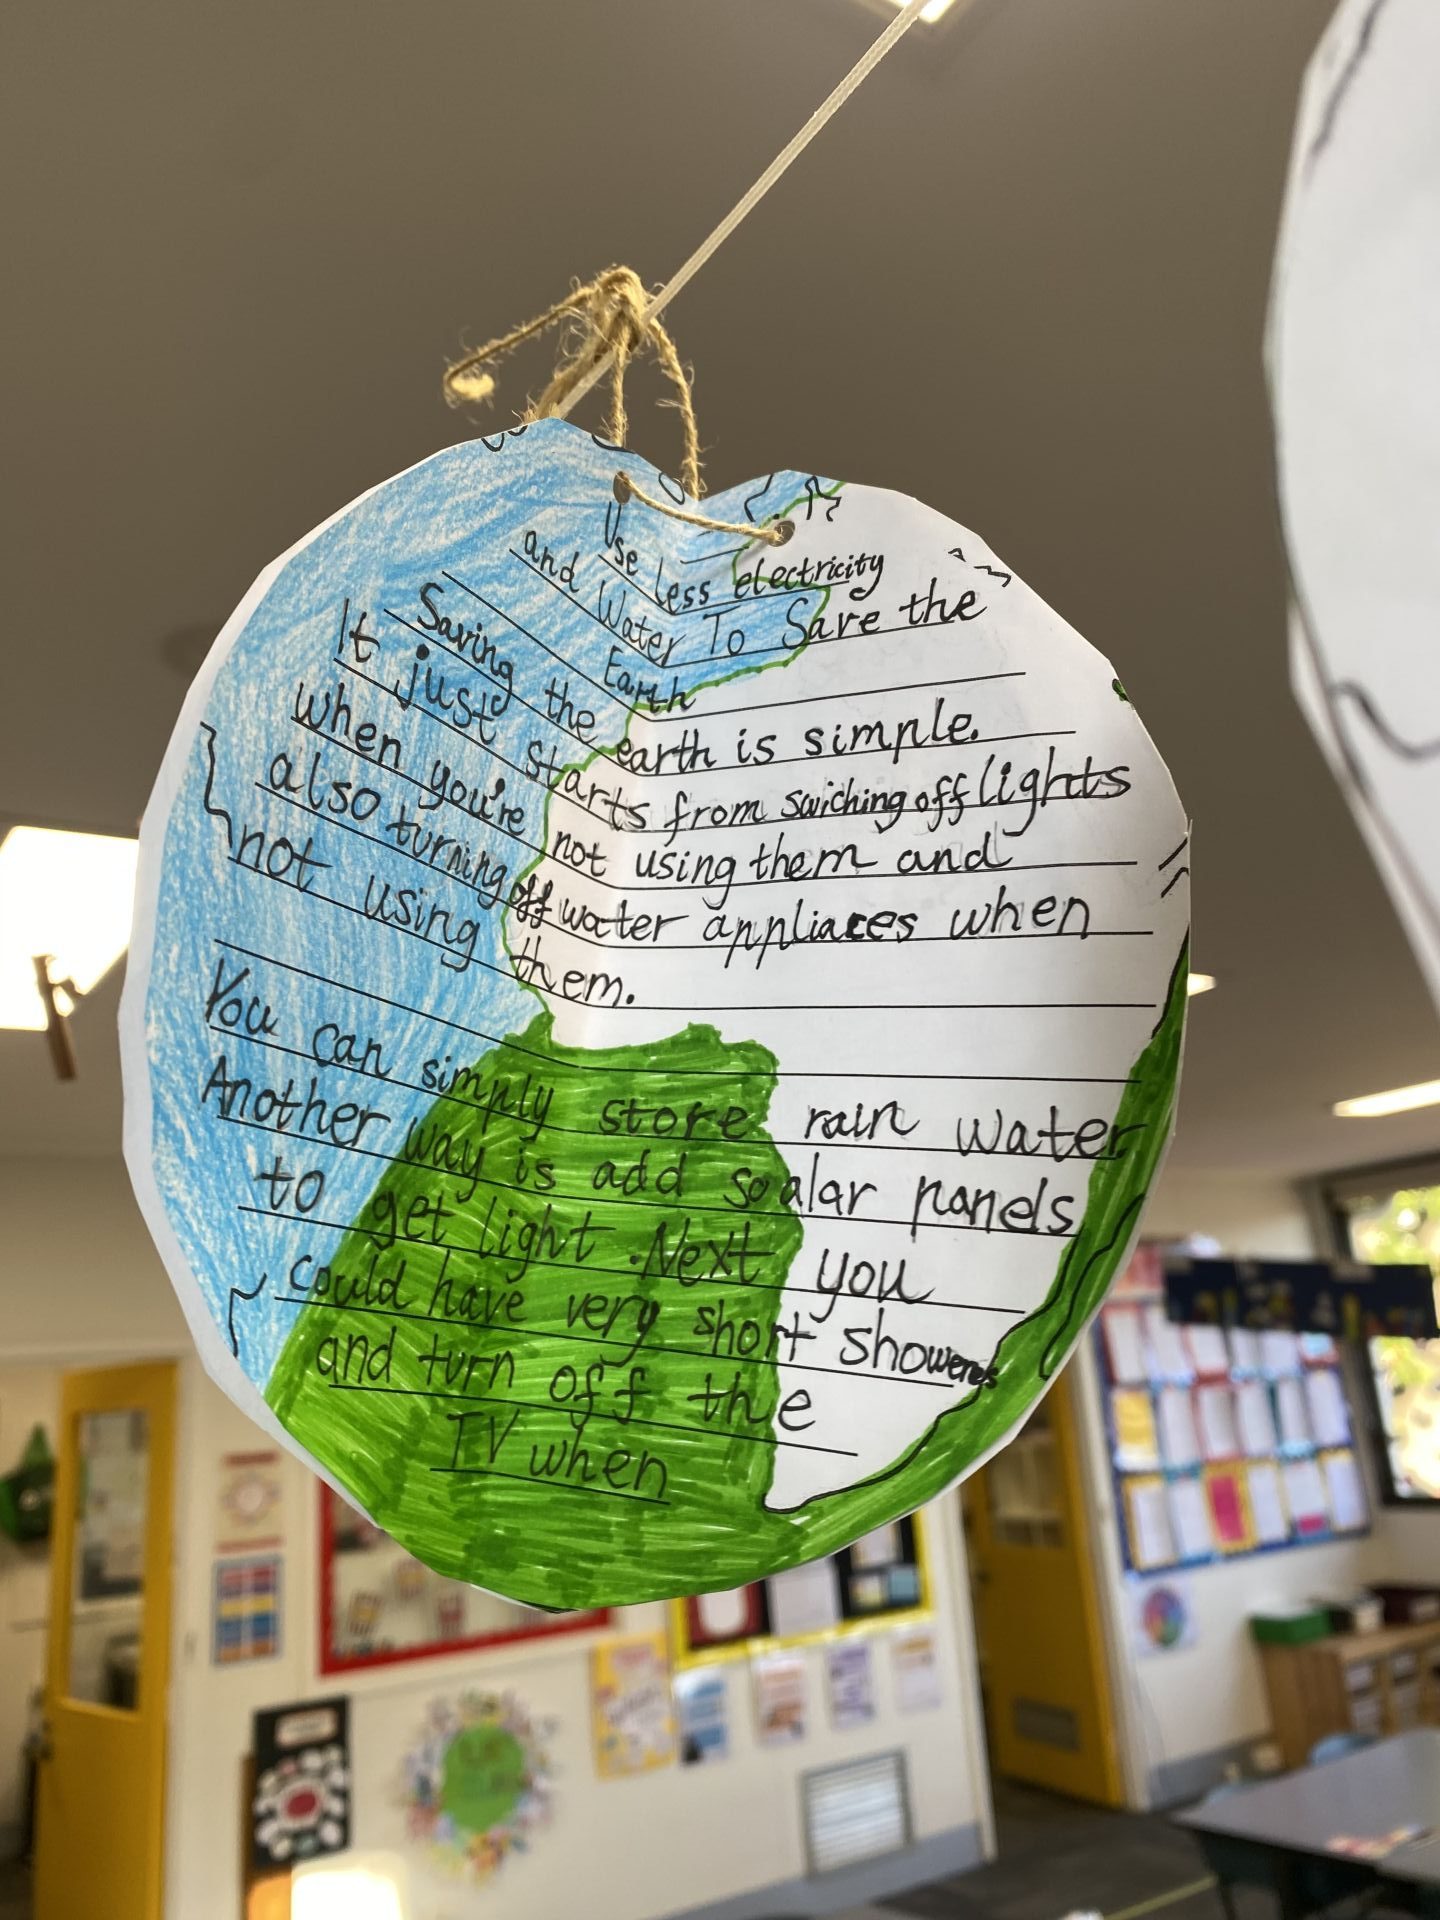 Use less electricity
and Water To Save the
Earth
Saving the earth is simple.
It just starts from swiching off lights
when you're not using them and
also turning off water appliaces when
not using them.
You can simply store rain water
Another way is add soalar panels
to get light. Next you
could have very short showers
and turn off the
TV when